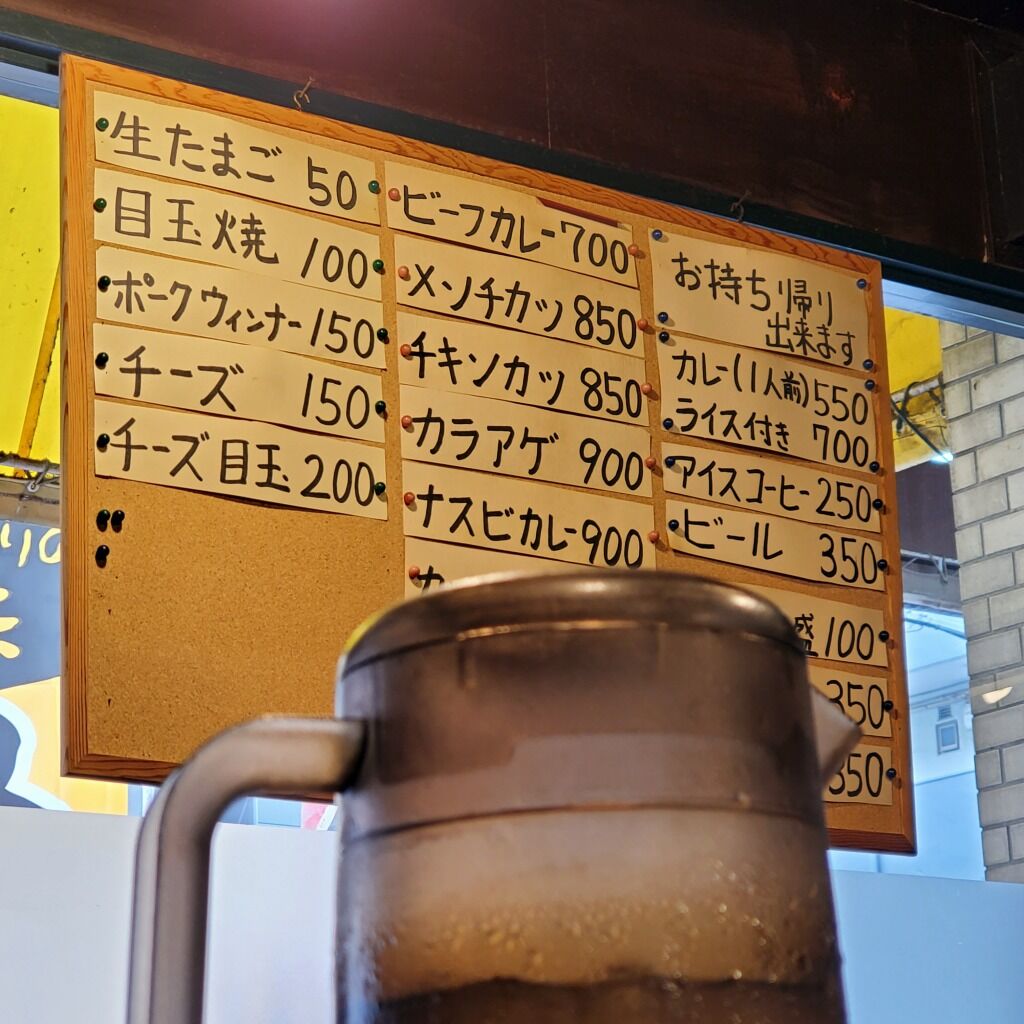 生たまご 50
目玉焼 100
ポークウィンナー 150
チーズ 150
チーズ目玉 200
ビーフカレー 700
メンチカツ 850
チキンカツ 850
カラアゲ 900
ナスビカレー 900
お持ち帰り
出来ます
カレー(1人前) 550
ライス付き 700
アイスコーヒー 250
ビール 350
盛 100
350
350